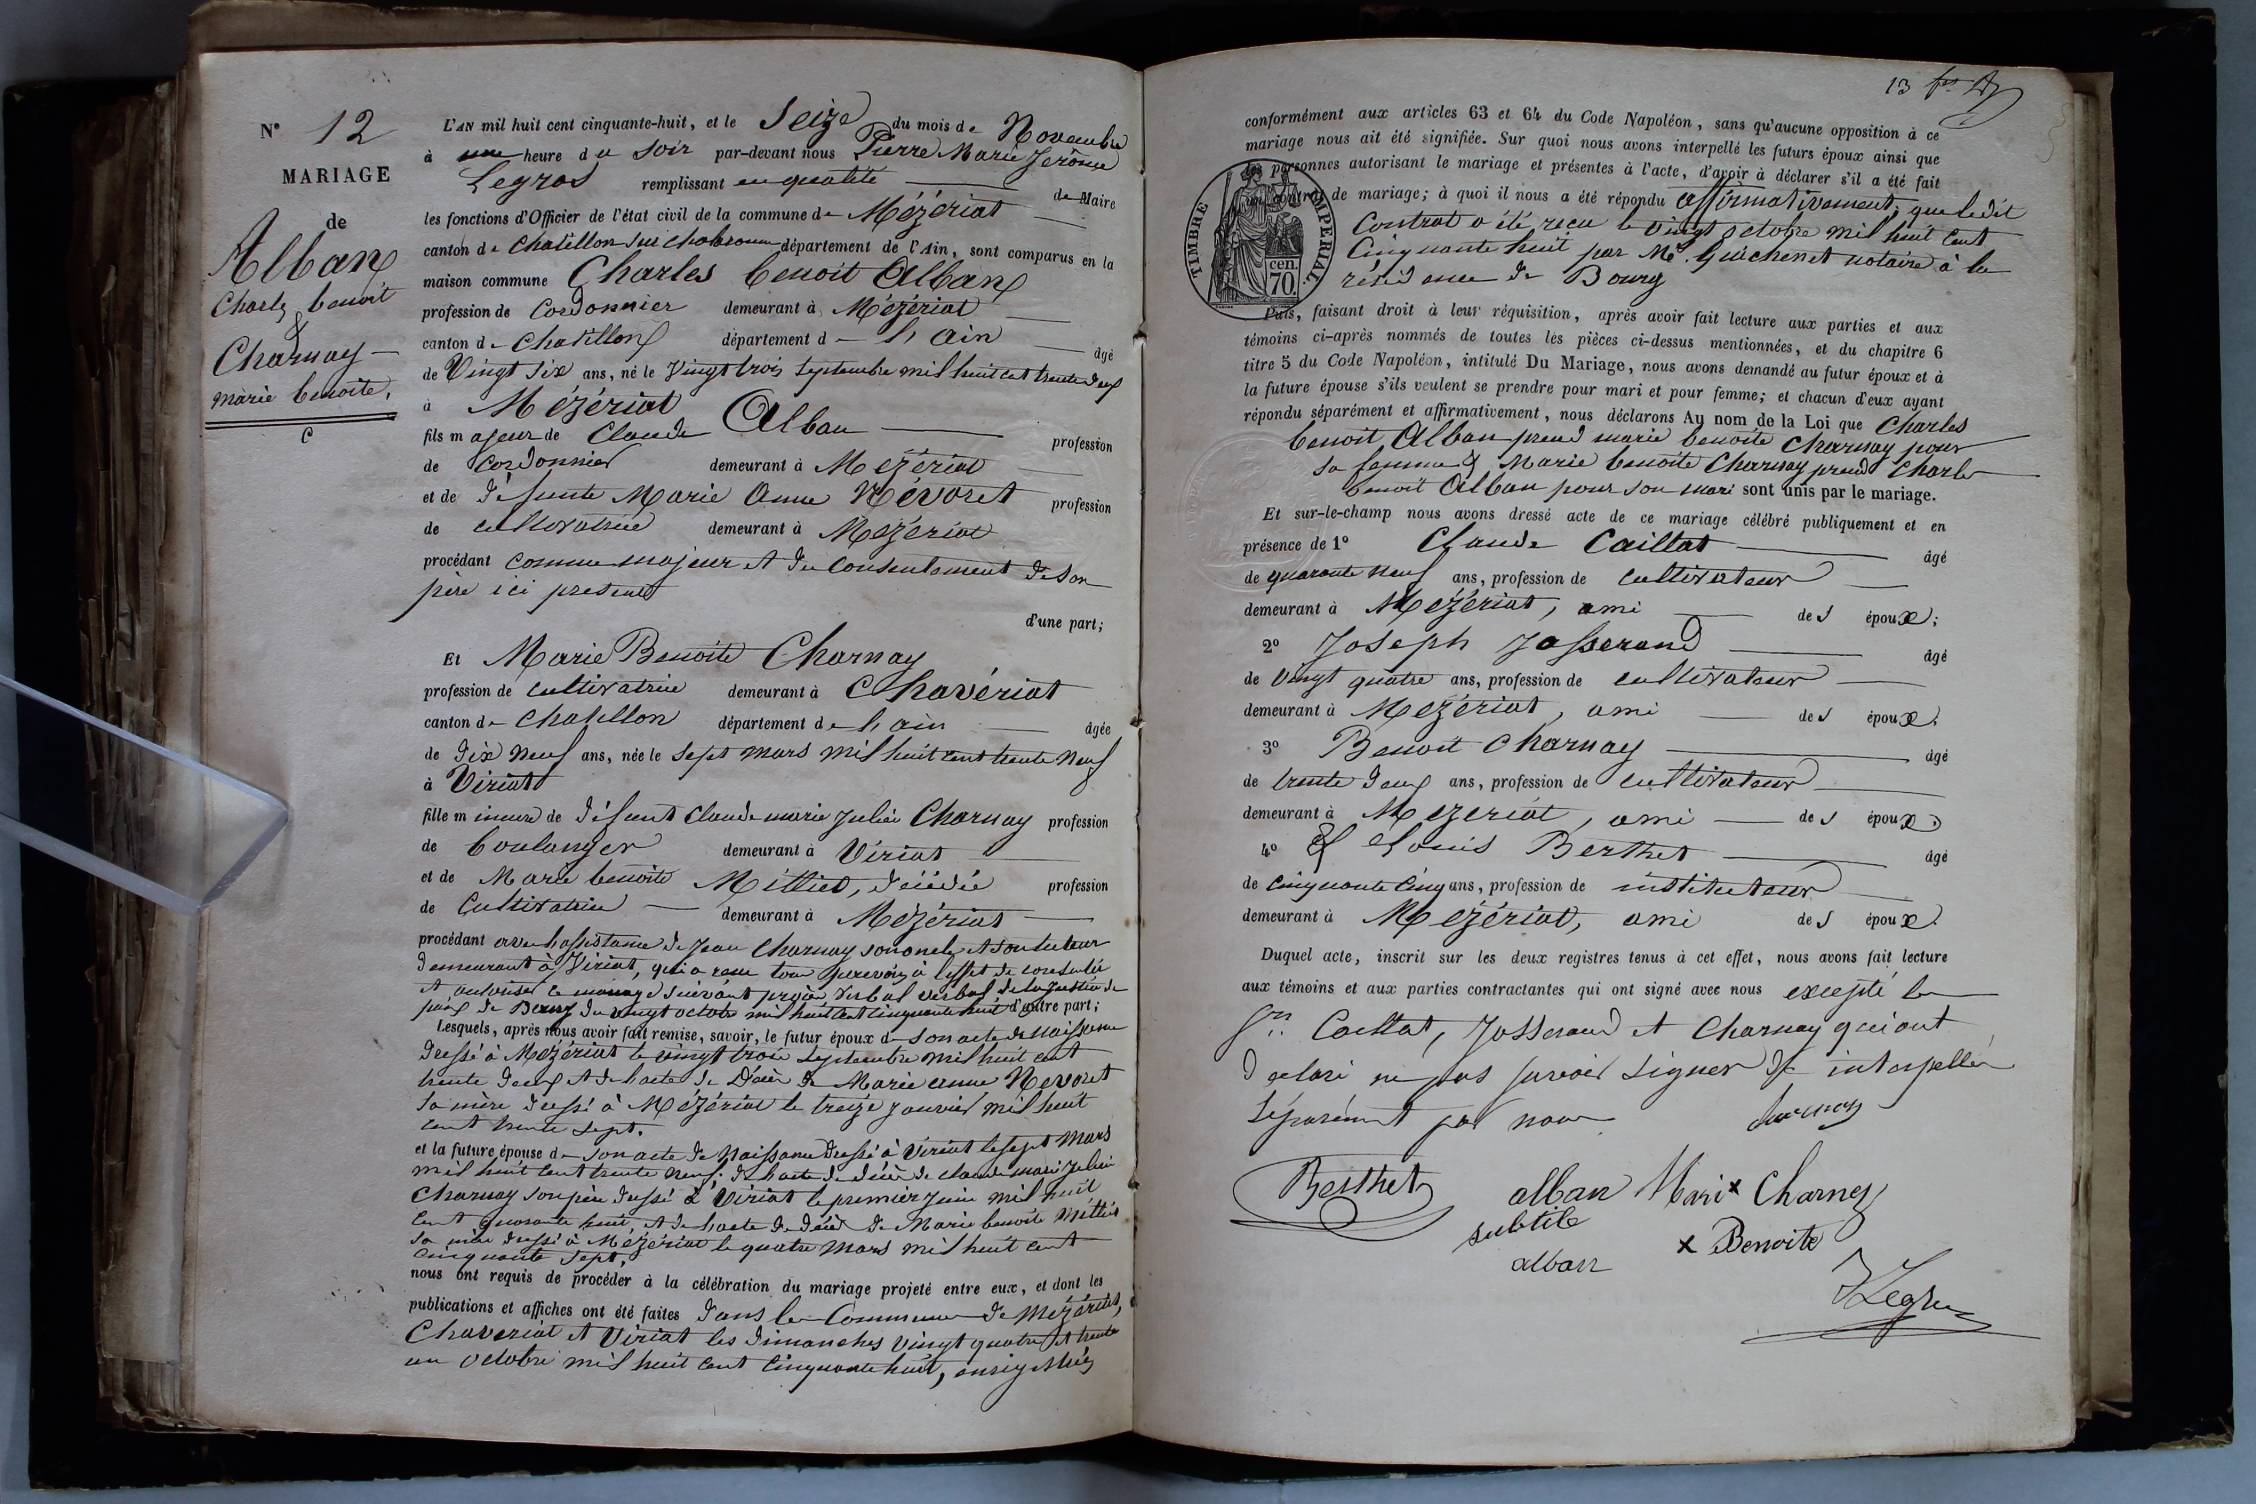 N° 12
MARIAGE
de
Alban
Charles benoit
&
Charnay
marie benoite.
C
L'AN mil huit cent cinquante-huit, et le Seize du mois de Novembre
à une heure du Soir par-devant nous Pierre Marie Jérôme
Legros remplissant en qualité de Maire
les fonctions d'Officier de l'état civil de la commune de Mézériat
canton de Chatillon sur chalaronne département de l'Ain, sont comparus en la
maison commune Charles benoit Alban
profession de Cordonnier demeurant à Mézériat
canton de Chatillon département de l'ain âgé
de Vingt six ans, né le Vingt trois Septembre mil huit cent trente deux
à Mézériat
fils majeur de Claude Alban profession
de Cordonnier demeurant à Mézériat
et de défunte Marie Anne Névoret profession
de cultivatrice demeurant à Mézériat
procédant comme majeur et du consentement de son
père ici présent
d'une part;
Et Marie Benoite Charnay
profession de cultivatrice demeurant à Chavériat
canton de Chatillon département de l'ain âgée
de dix neuf ans, née le sept mars mil huit cent trente neuf
à Viriat
fille mineure de défunt Claude marie julien Charnay profession
de boulanger demeurant à Viriat
et de Marie benoite Milliet, décédée profession
de Cultivatrice demeurant à Mézériat
procédant avec l'assistance de Jean Charnay son oncle et son tuteur
demeurant à Viriat, qui a reçu tous pouvoirs à l'effet de consentir
et autoriser le mariage suivant procès verbal verbal de la justice de
paix de Bourg du vingt octobre mil huit cent cinquante huit d'autre part;
Lesquels, après nous avoir fait remise, savoir, le futur époux de son acte de naissance
dressé à Mézériat le vingt trois septembre mil huit cent
trente deux et de l'acte de Décès de Marie anne Nevoret
sa mère dressé à Mézériat le treize janvier mil huit
cent trente sept.
et la future épouse de son acte de Naissance dressé à Viriat le sept Mars
mil huit cent trente neuf; de l'acte de décès de claude marie julien
Charnay son père dressé à Viriat le premier juin mil huit
cent quarante huit, et de l'acte de décès de Marie benoite Milliet
sa mère dressé à Mézériat le quatre Mars mil huit cent
cinquante sept.
nous ont requis de procéder à la célébration du mariage projeté entre eux, et dont les
publications et affiches ont été faites dans les Communes de Mézériat,
Chaveriat et Viriat les dimanches vingt quatre et trente
un octobre mil huit cent cinquante huit,
13
conformément aux articles 63 et 64 du Code Napoléon, sans qu'aucune opposition à ce
mariage nous ait été signifiée. Sur quoi nous avons interpellé les futurs époux ainsi que
les personnes autorisant le mariage et présentes à l'acte, d'avoir à déclarer s'il a été fait
un contrat de mariage; à quoi il nous a été répondu affirmativement; que ledit
Contrat a été reçu le vingt octobre mil huit cent
Cinquante huit par Me. Guichenet notaire à la
résidence de Bourg
TIMBRE IMPERIAL
70 cen.
Puis, faisant droit à leur réquisition, après avoir fait lecture aux parties et aux
témoins ci-après nommés de toutes les pièces ci-dessus mentionnées, et du chapitre 6
titre 5 du Code Napoléon, intitulé Du Mariage, nous avons demandé au futur époux et à
la future épouse s'ils veulent se prendre pour mari et pour femme; et chacun d'eux ayant
répondu séparément et affirmativement, nous déclarons Au nom de la Loi que Charles
benoit Alban prend marie benoite Charnay pour
sa femme & Marie benoite Charnay prend Charles
benoit Alban pour son mari sont unis par le mariage.
Et sur-le-champ nous avons dressé acte de ce mariage célébré publiquement et en
présence de 1° Claude Caillat âgé
de quarante neuf ans, profession de cultivateur
demeurant à Mézériat, ami des époux;
2° Joseph Josserand âgé
de Vingt quatre ans, profession de cultivateur
demeurant à Mézériat, ami des époux.
3° Benoit Charnay âgé
de trente deux ans, profession de cultivateur
demeurant à Mézériat, ami des époux.
4° & Louis Berthet âgé
de cinquante cinq ans, profession de instituteur
demeurant à Mézériat, ami des époux.
Duquel acte, inscrit sur les deux registres tenus à cet effet, nous avons fait lecture
aux témoins et aux parties contractantes qui ont signé avec nous excepté les
Srs. Caillat, Josserand et Charnay qui ont
déclaré ne pas savoir signer de ce interpellés
séparément par nous
Berthet
alban Marie x Charney
subtile x Benoite
alban
Legros